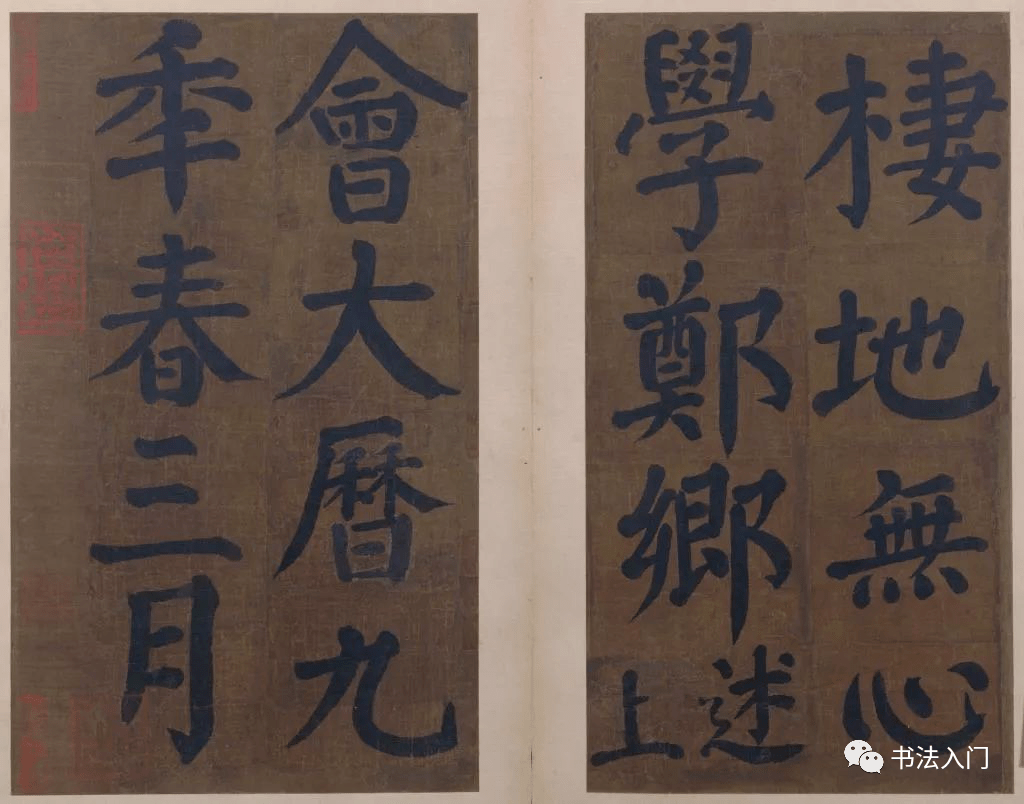 棲地無心
學鄭鄉述上
會大曆九
秊春三月
书法入门